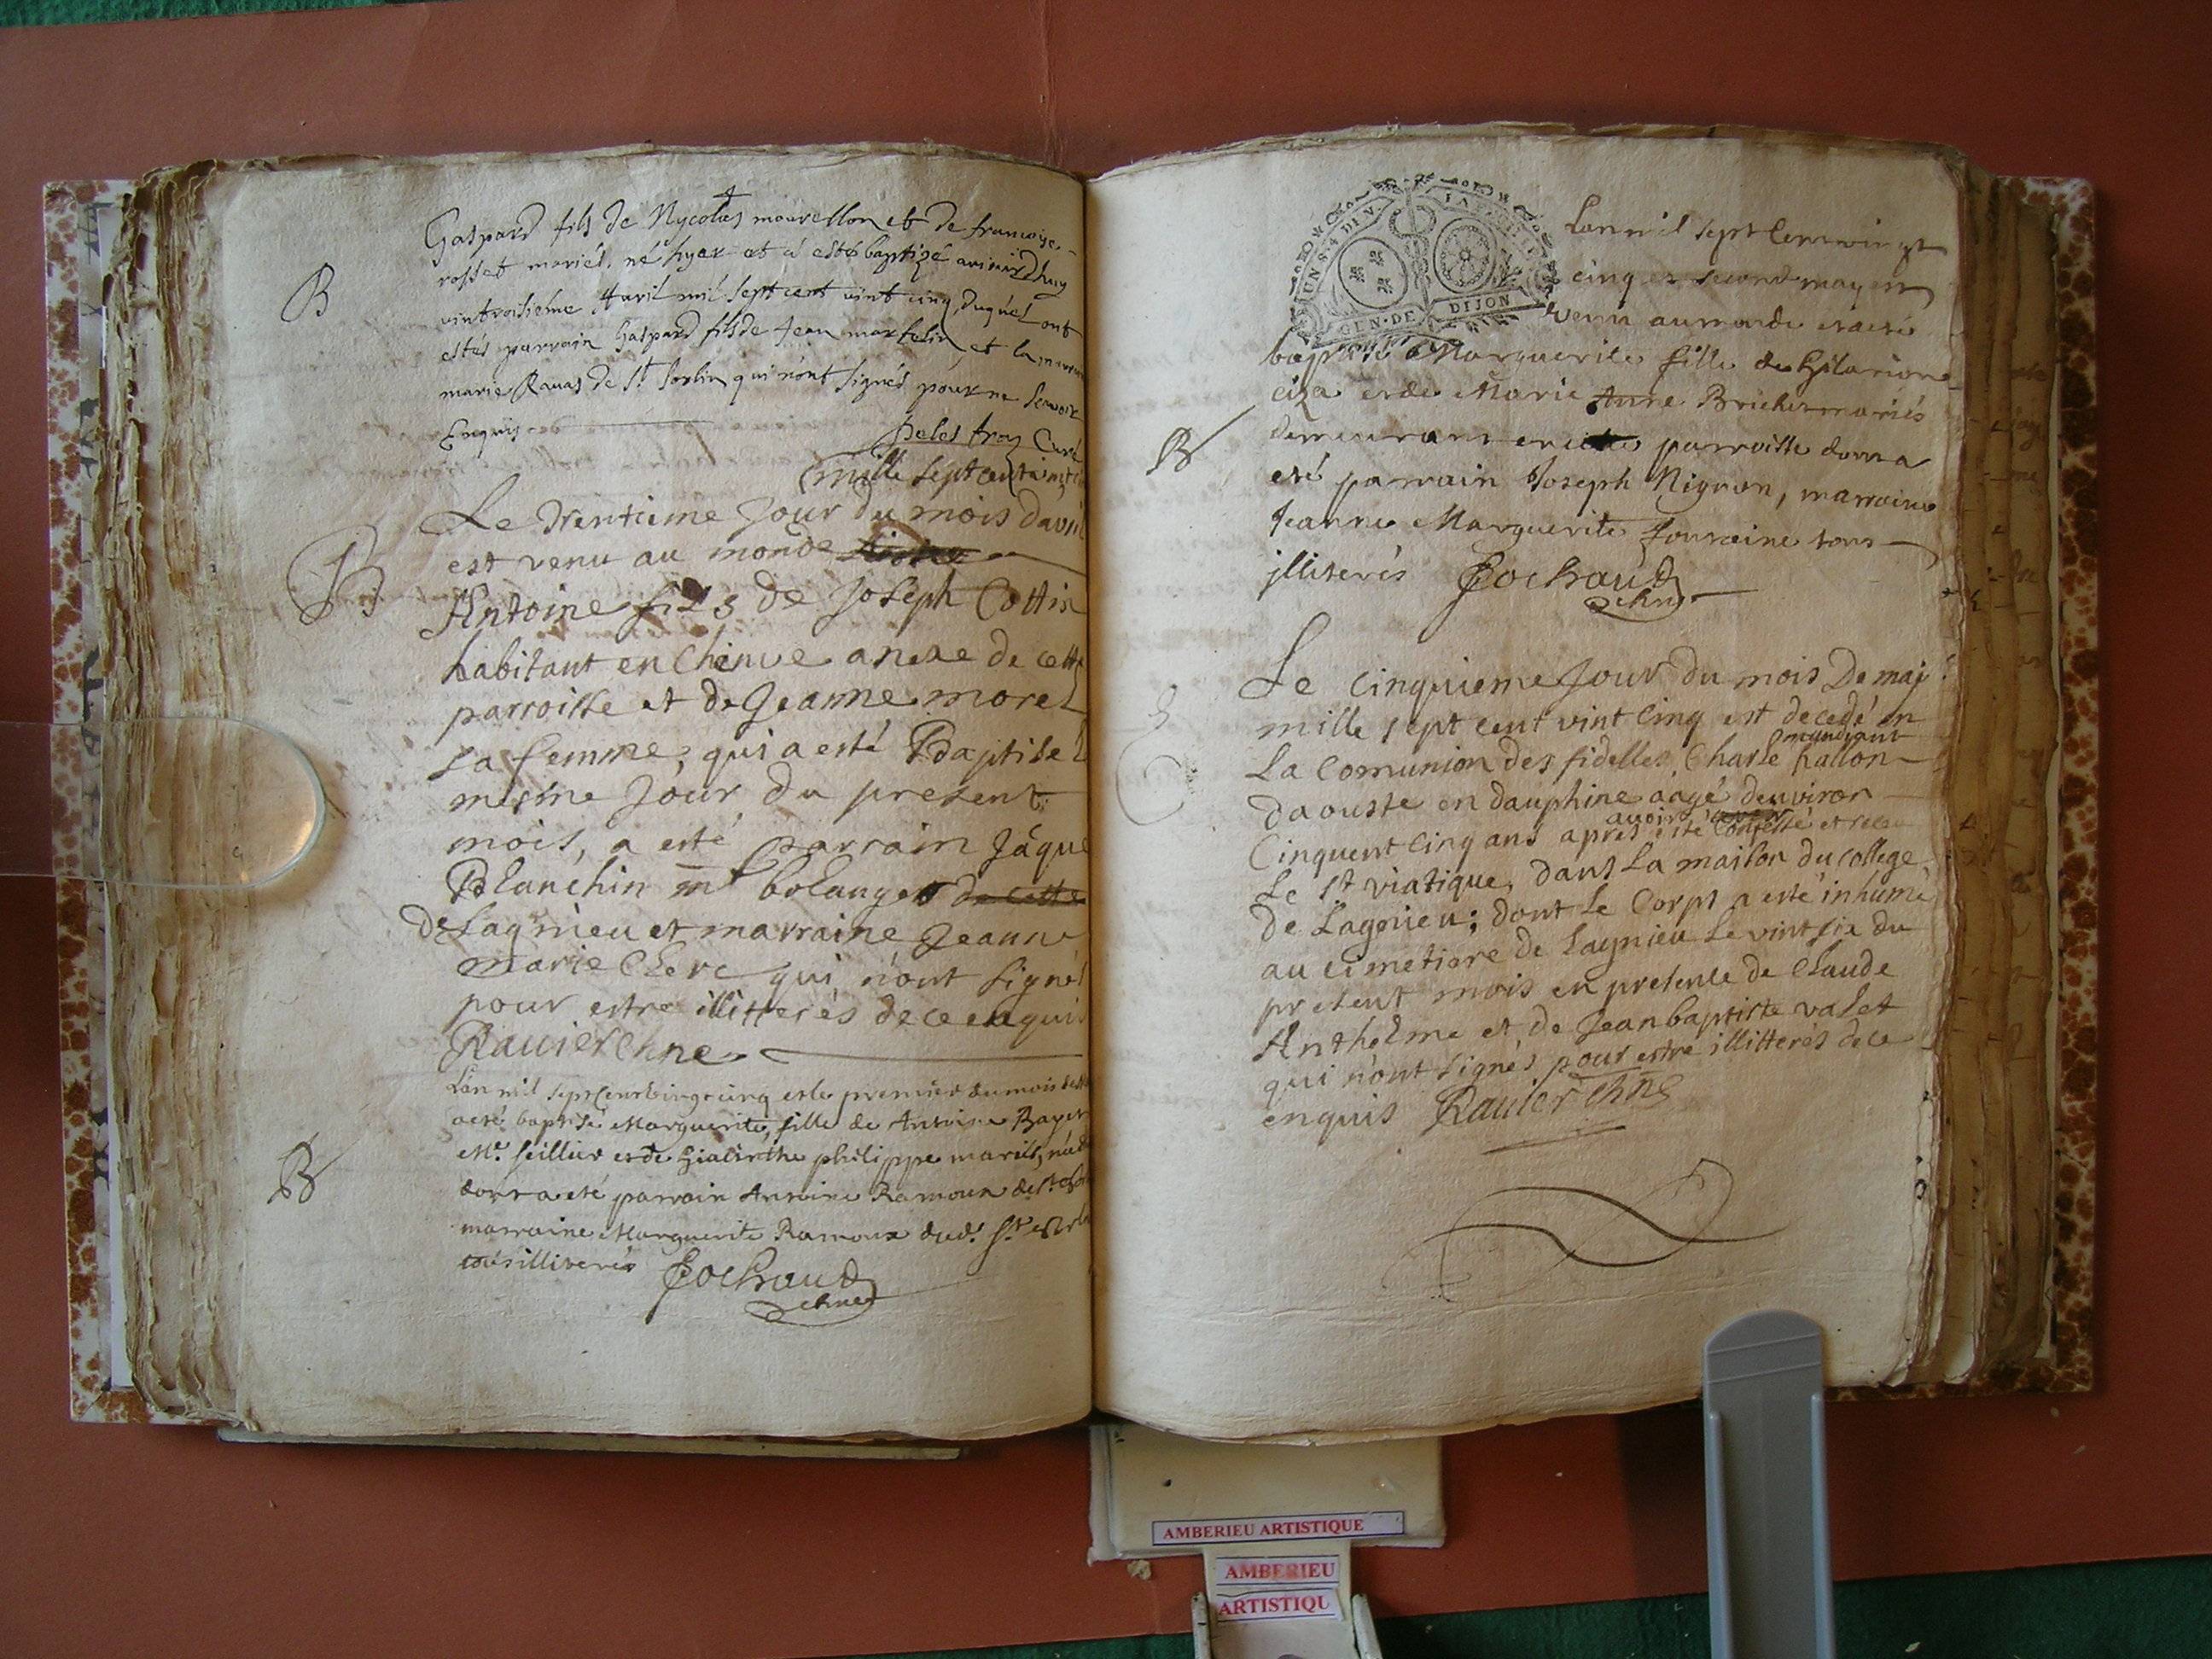 B
Gaspard fils de Nycolas mourellon et de francoise
rosset mariés, né hyer et a esté baptizé aujourdhuy
vintroisieme Avril mil sept cent vint cinq, duquel ont
estés parrain Gaspard fils de Jean marfelin et la marr
marie Ravas de St Sorlin qui n'ont signés pour ne scavoir
Enquis
Curé
mille sept cent vint
B
Le trentieme Jour du mois davril
est venu au monde
Antoine fils de Joseph Cottin
habitant en Chenve anexe de cette
parroisse et de Jeanne morel
sa femme, qui a esté Baptisé l
mesme Jour du present
mois, a esté parrain Jâque
Blanchin mt bolanger de cette
de Lagnieu et marraine Jeanne
marie Clerc qui n'ont signés
pour estre illitterés de ce enquis
Ravier chne
B
Lan mil sept cent vingt cinq et le premier du mois de
a eté baptisé Marguerite, fille de Antoine Bayet
Me. seillier et de hiacinthe philippe mariés,
dont a eté parrain Antoine Ramoux de St
marraine Marguerite Ramoux dud. St
tous illiterés Jochraud
chne
GEN. DE DIJON
Lan mil sept cent vingt
cinq et second may est
venu au monde et a eté
baptisé Marguerite fille de hilarion
ciza et de Marie Anne Brichet mariés
B
demeurant en parroisse dont a
eté parrain Joseph Nigron, marraine
Jeanne Marguerite fontaine tous
jlliterés Jochraud
chne
Le cinquieme Jour du mois De may
mille sept cent vint cinq est decedé en
mandiant
La Comunion des fidelles, Charle hallon
daouste en dauphine aagé denviron
avoir
Cinquent cinq ans apres esté Confessé et receu
Le St viatique, dans La maison du college
de Lagnieu; dont Le Corps a esté inhumé
au cimetiere de Lagnieu Le vint six du
present mois en presence de Claude
Anthelme et de Jean baptiste valet
qui n'ont signés pour estre illitterés de ce
enquis Ravier chne
AMBERIEU ARTISTIQUE
AMBERIEU
ARTISTIQU